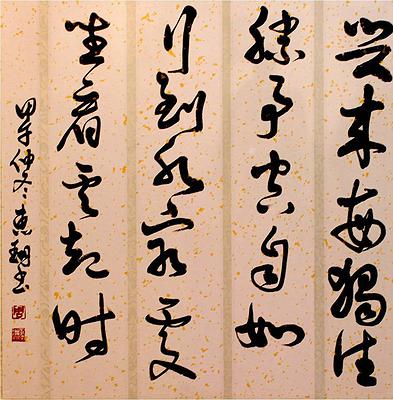 兴来每獨往
胜事空自知
行到水穷处
坐看云起时
甲午仲冬惠书